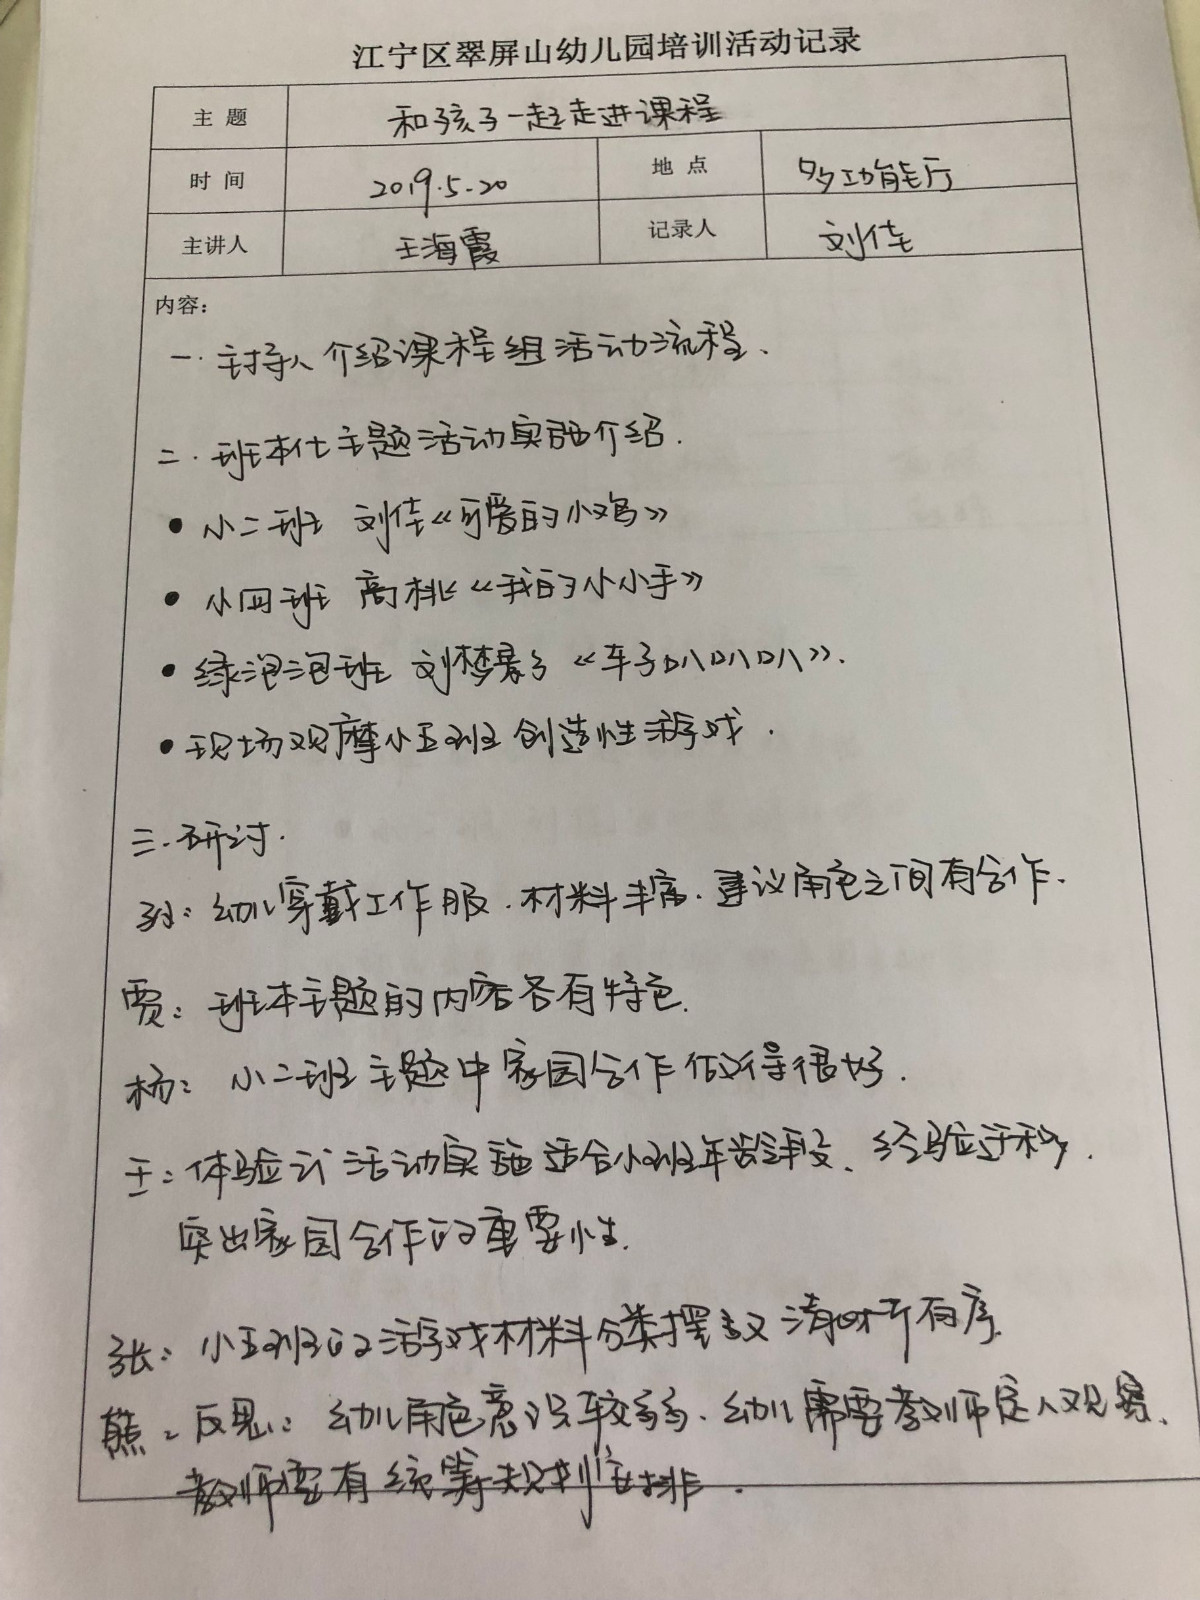 江宁区翠屏山幼儿园培训活动记录
主 题 和孩子一起走进课程
时 间 2019.5.20 地 点 多功能厅
主讲人 王海霞 记录人 刘佳
内容：
一.主持人介绍课程组活动流程.
二.班本化主题活动实施介绍.
●小二班 刘佳《可爱的小鸡》
●小四班 高桃《我的小小手》
●绿泡泡班 刘梦 《车子叭叭叭》.
●现场观摩小五班创造性游戏.
三.研讨.
孙：幼儿穿戴工作服.材料丰富.建议角色之间有合作.
贾：班本主题的内容各有特色.
杨：小二班主题中家园合作做得很好.
王：体验式活动实施适合小班年龄段、经验迁移.
突出家园合作的重要性.
张：小五班的游戏材料分类摆放清晰有序.
熊：反思：幼儿角色意识较弱.幼儿需要教师定人观察.
教师要有统筹规划安排.